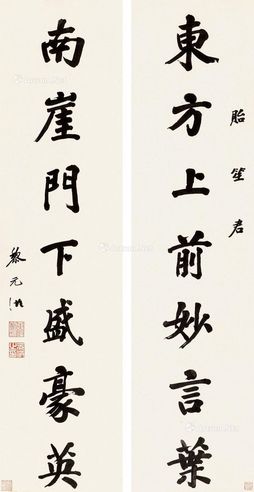 胎笙君
東方上前妙言葉
南崖門下盛豪英
黎元洪